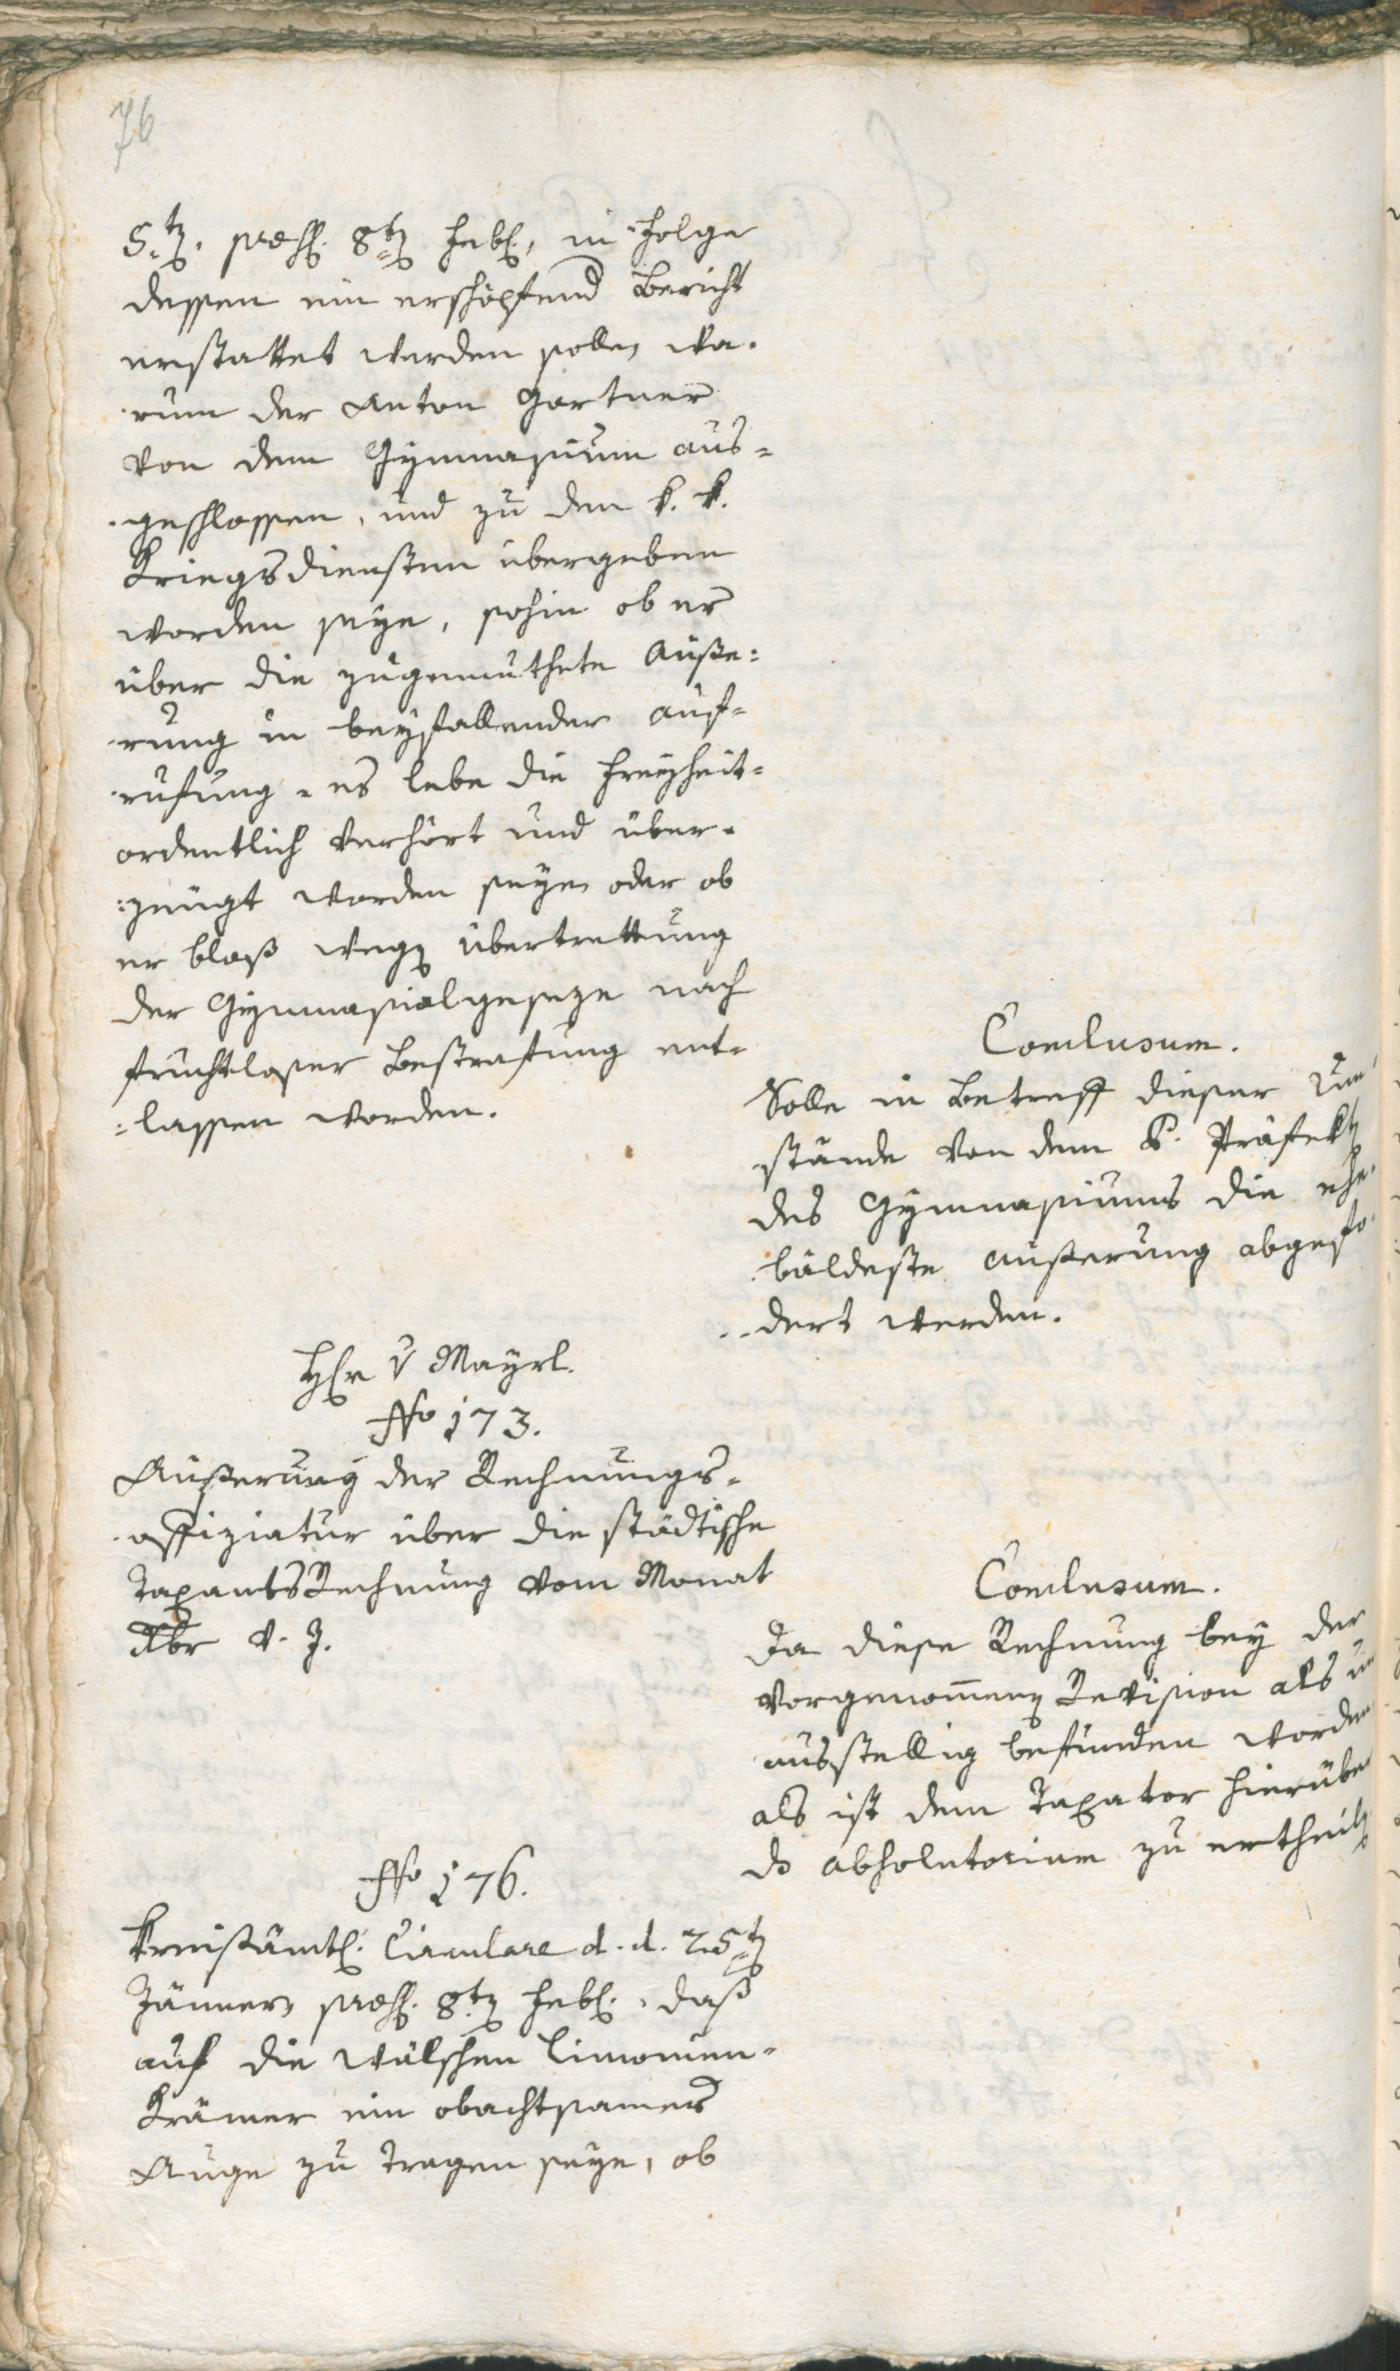 76
5.ten praes. 8ten Febr., in Folge
dessen ein erschöpfend Bericht
erstattet werden solle, wa-
rum der Anton Gartner
von dem Gymnasium aus=
geschlossen, und zu den k. k.
Kriegsdiensten übergeben
worden seye, sohin ob er
über die zugemuthete Äuße=
rung in beyfallender auf=
rufung = es lebe die Freyheit =
ordentlich verhört und über=
=zeugt worden seye, oder ob
er bloß wegen übertrettung
der Gymnasialgeseze nach
fruchtloser Bestrafung ent=
=lassen worden.
Conclusum.
Solle in Betreff dieser Um
stände von dem P. Präfekten
des Gymnasiums die ehe
bäldeste äußerung abgefo
dert werden.
Hr v Mayrl.
No 173.
Äußerung der Rechnungs=
offiziatur über die städtische
Taxamts Rechnung vom Monat
Xbr v. J.
Conclusum.
Da diese Rechnung bey der
vorgenommenen Revision als un
ausstellig befunden worden
als ist dem Taxator hierüber
do absolutorium zu ertheilen
No 176.
Kreisämtl. Circulare d. d. 25ten
Jänner, praes. 8ten Febr., daß
auf die wälschen Limonien=
Krämer ein obachtsames
Auge zu tragen seye, ob